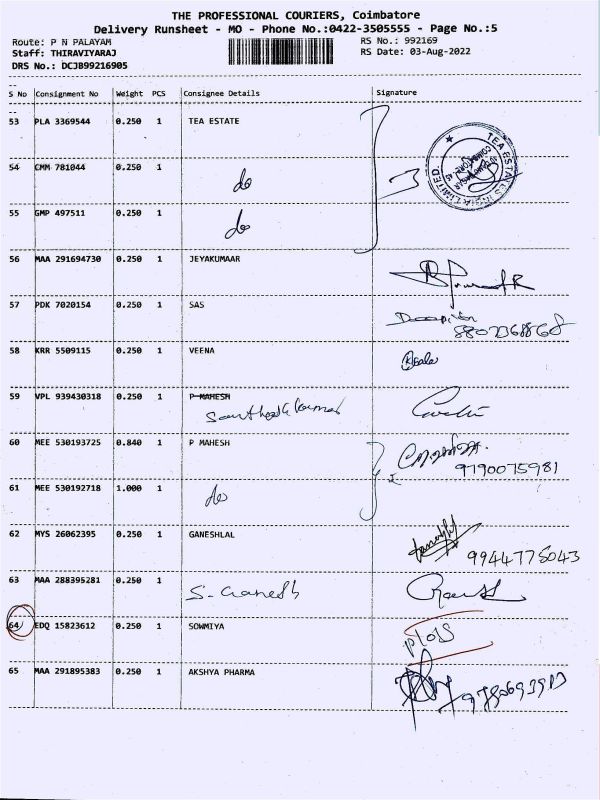 THE PROFESSIONAL COURIERS, Coimbatore
Delivery Runsheet - MO - Phone No.:0422-3505555 - Page No.:5
Route: P N PALAYAM RS No.: 992169
Staff: THIRAVIYARAJ RS Date: 03-Aug-2022
DRS No.: DCJB99216905
S No Consignment No Weight PCS Consignee Details Signature
53 PLA 3369544 0.250 1 TEA ESTATE
TEA ESTATES INDIA LIMITED
54 CMM 781044 0.250 1 do 3
55 GMP 497511 0.250 1 do
56 MAA 291694730 0.250 1 JEYAKUMAAR
57 PDK 7020154 0.250 1 SAS
58 KRR 5509115 0.250 1 VEENA
59 VPL 939430318 0.250 1 P MAHESH
60 MEE 530193725 0.840 1 P MAHESH
9790075981
61 MEE 530192718 1.000 1 do
62 MYS 26062395 0.250 1 GANESHLAL
9944775043
63 MAA 288395281 0.250 1 S. Ganesh
64 EDQ 15823612 0.250 1 SOWMIYA
65 MAA 291895383 0.250 1 AKSHYA PHARMA